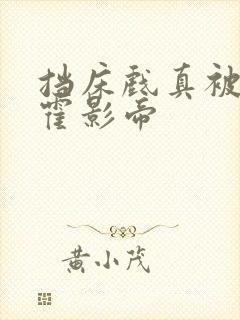 挡床戲真被
霍影帝
黄小茂